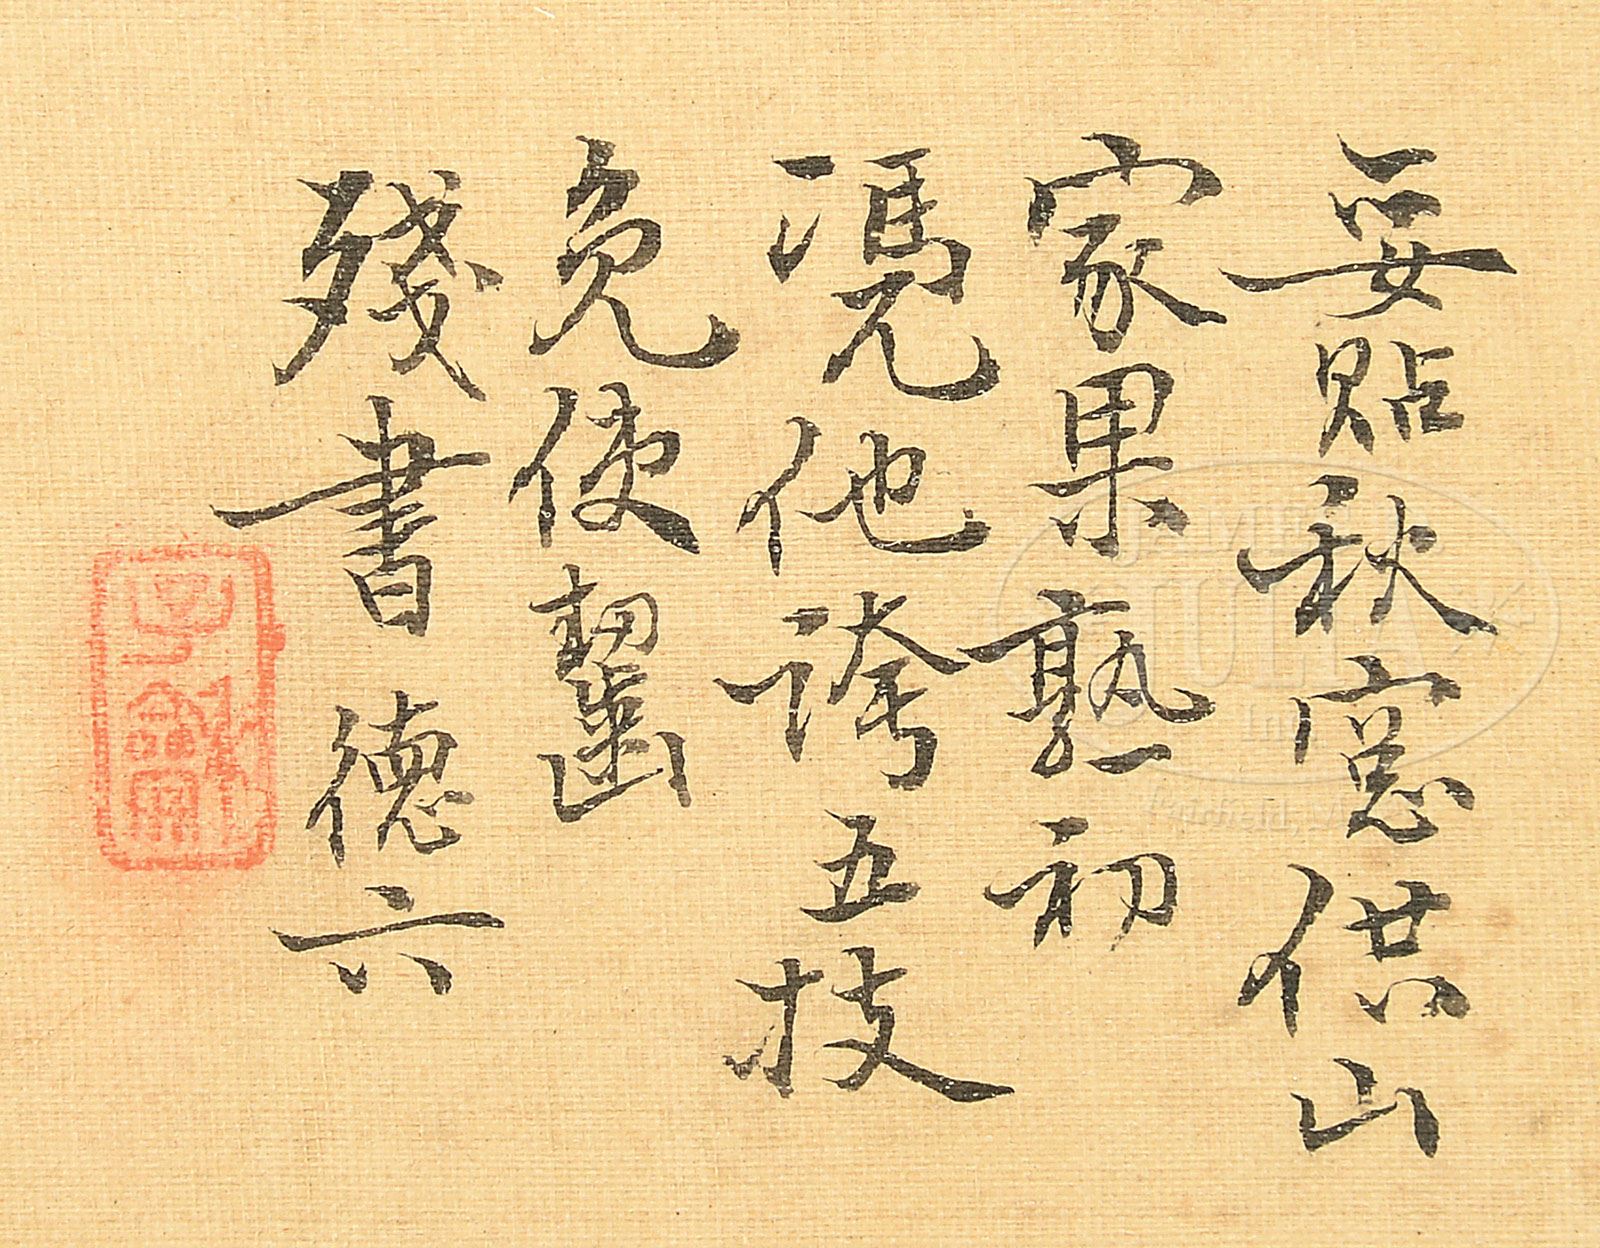 妥貼秋窓供山
家果熟初
馮他誇五技
免使齧
殘書 德六
JAMES D.
JULIA
Inc.
Fairfield, ME